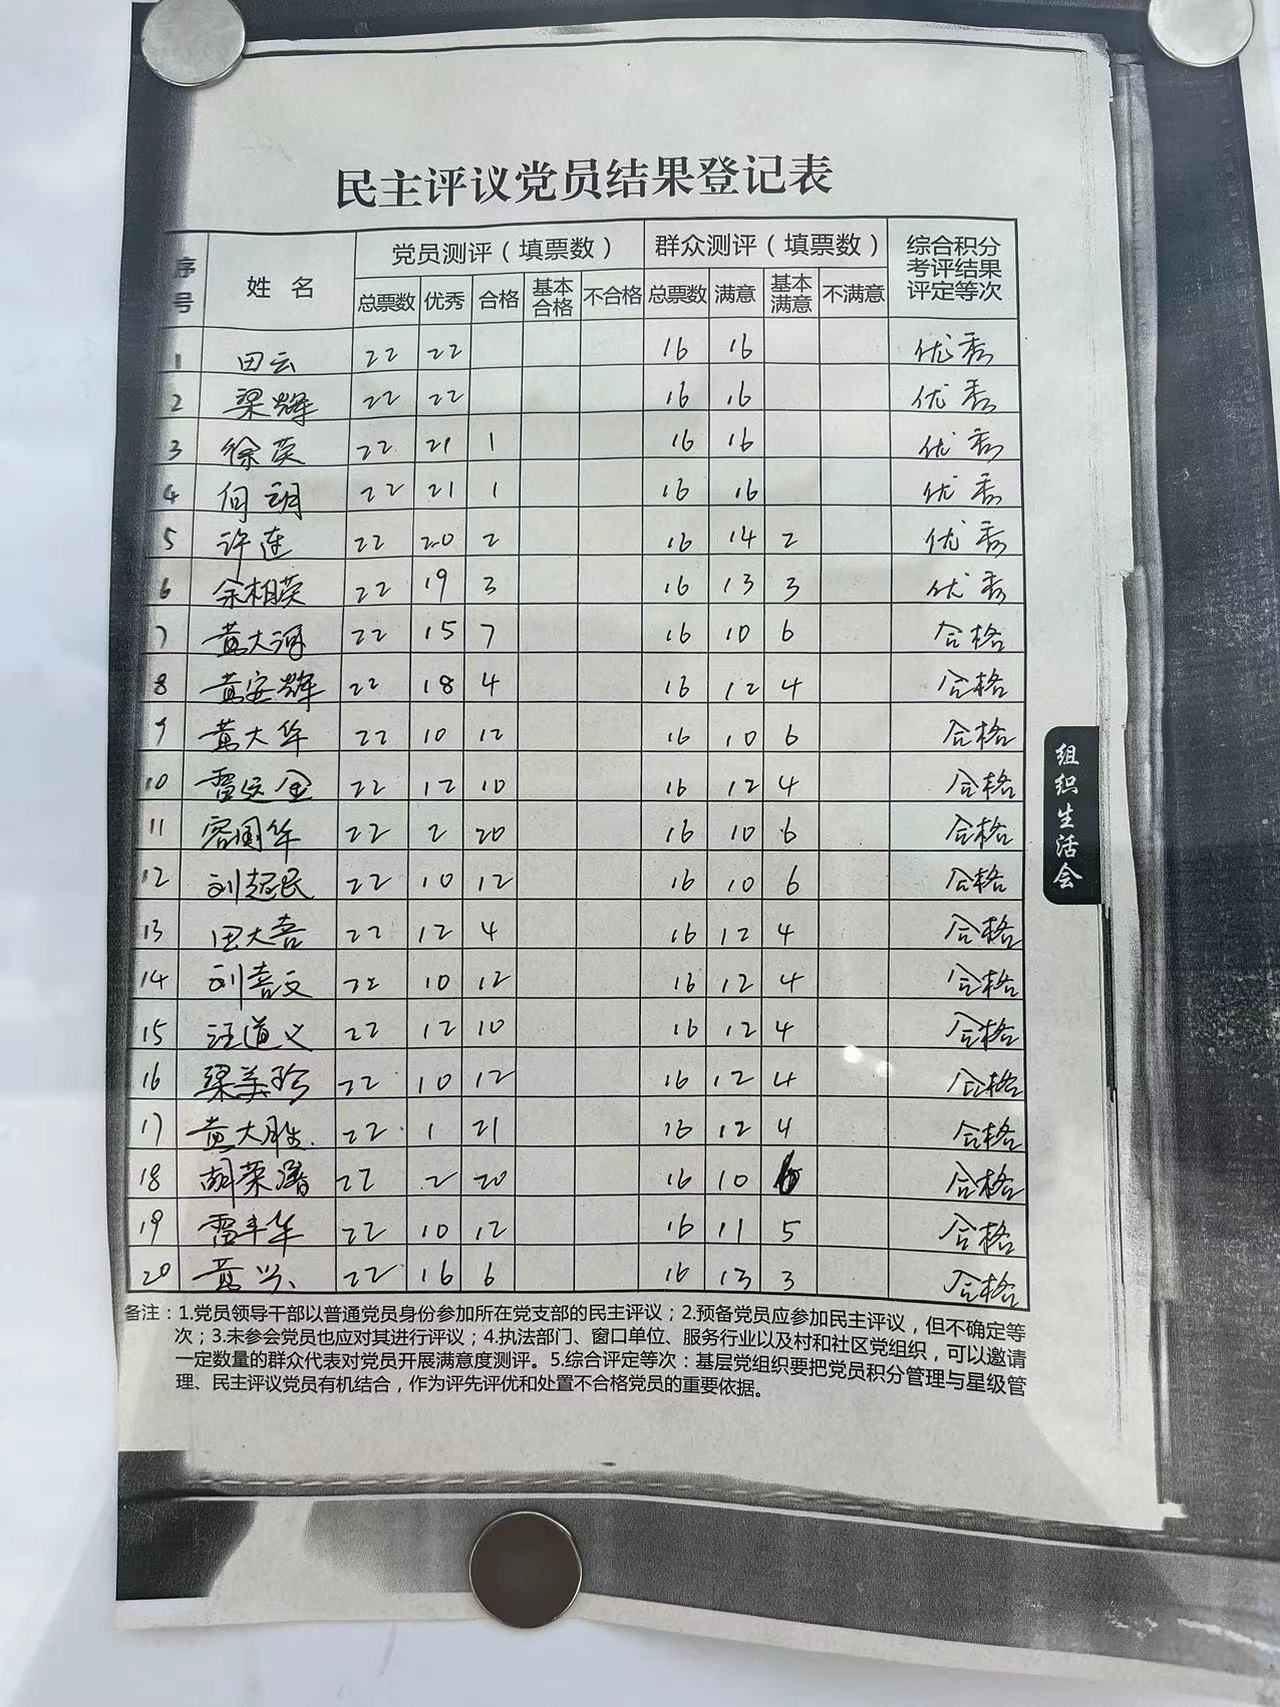 民主评议党员结果登记表
序号 姓名 党员测评（填票数） 群众测评（填票数） 综合积分考评结果评定等次
总票数 优秀 合格 基本合格 不合格 总票数 满意 基本满意 不满意
1 田云 22 22 16 16 优秀
2 梁辉 22 22 16 16 优秀
3 徐荣 22 21 1 16 16 优秀
4 何明 22 21 1 16 16 优秀
5 许连 22 20 2 16 14 2 优秀
6 余相荣 22 19 3 16 13 3 优秀
7 黄大河 22 15 7 16 10 6 合格
8 黄安辉 22 18 4 16 12 4 合格
9 黄大华 22 10 12 16 10 6 合格
10 雷运金 22 12 10 16 12 4 合格
11 容国华 22 2 20 16 10 6 合格
12 刘超民 22 10 12 16 10 6 合格
13 田大喜 22 12 4 16 12 4 合格
14 刘喜文 22 10 12 16 12 4 合格
15 汪道义 22 12 10 16 12 4 合格
16 梁美珍 22 10 12 16 12 4 合格
17 黄大胜 22 1 21 16 12 4 合格
18 胡荣 22 2 20 16 10 6 合格
19 雷丰华 22 10 12 16 11 5 合格
20 黄兴 22 16 6 16 13 3 合格
备注：1.党员领导干部以普通党员身份参加所在党支部的民主评议；2.预备党员应参加民主评议，但不确定等
次；3.未参会党员也应对其进行评议；4.执法部门、窗口单位、服务行业以及村和社区党组织，可以邀请
一定数量的群众代表对党员开展满意度测评。5.综合评定等次：基层党组织要把党员积分管理与星级管
理、民主评议党员有机结合，作为评先评优和处置不合格党员的重要依据。
组织生活会